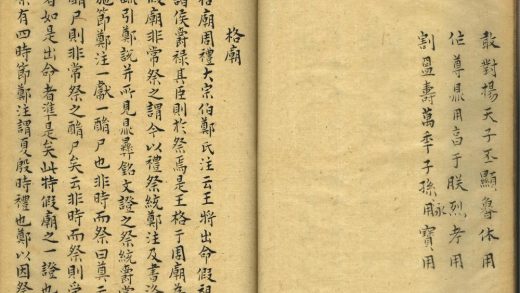 敢對揚天子丕顯魯休用
作尊鼎用亯于朕烈考用
割盟壽萬年子孫永寶用
格廟
格廟周禮大宗伯鄭氏注云王將出命假祖
諸侯爵祿其臣則於祭焉是王格于周廟為
假廟非常祭之謂今以禮祭統鄭注及書洛
疏引鄭說并所見鼎彝銘文證之祭統爵賞
施節鄭注一獻一酳尸也非時而祭曰奠
酳尸則非常祭之酳尸矣云非時而祭則常
者如是出命者準是矣此特假廟之一證也
祭有四時節鄭注謂夏殷時禮也鄭以因祭